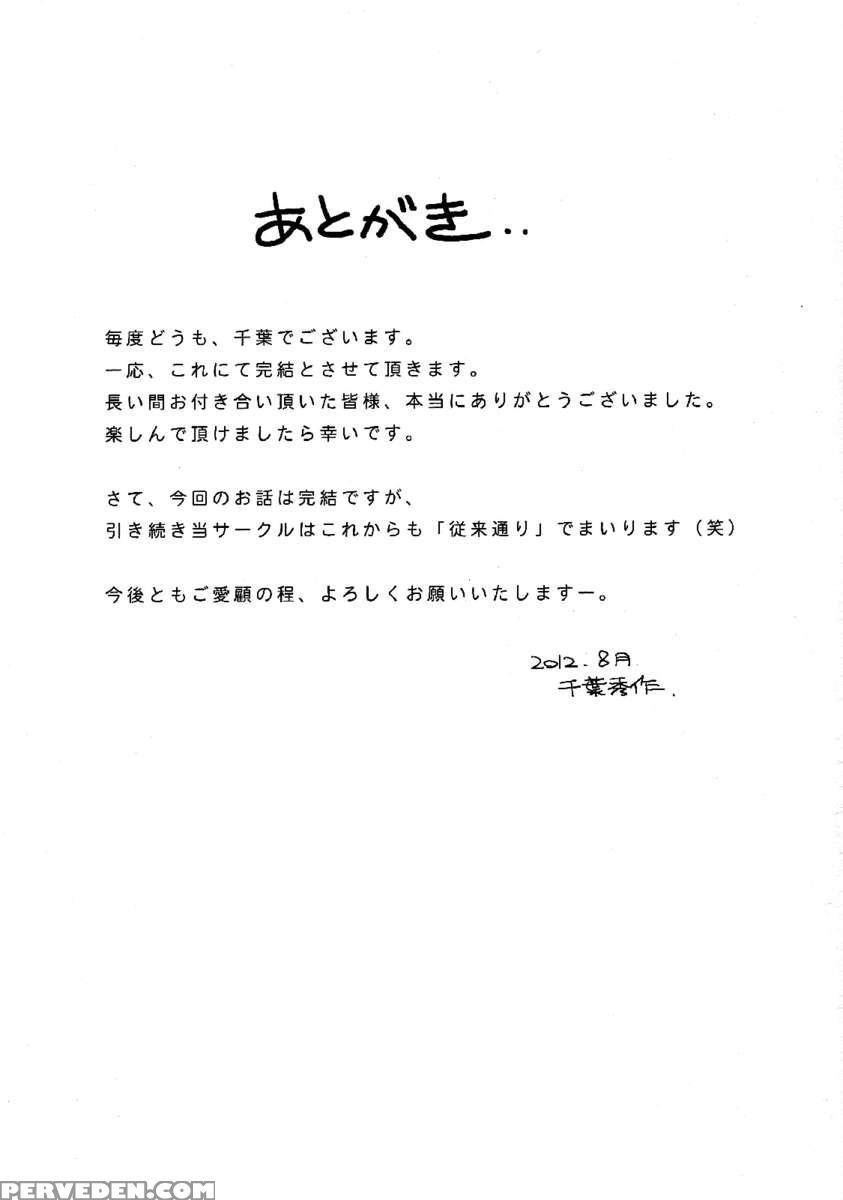 あとがき..
毎度どうも、千葉でございます。
一応、これにて完結とさせて頂きます。
長い間お付き合い頂いた皆様、本当にありがとうございました。
楽しんで頂けましたら幸いです。
さて、今回のお話は完結ですが、
引き続き当サークルはこれからも「従来通り」でまいります（笑）
今後ともご愛顧の程、よろしくお願いいたしますー。
2012.8月
千葉秀作.
PERVEDEN.COM